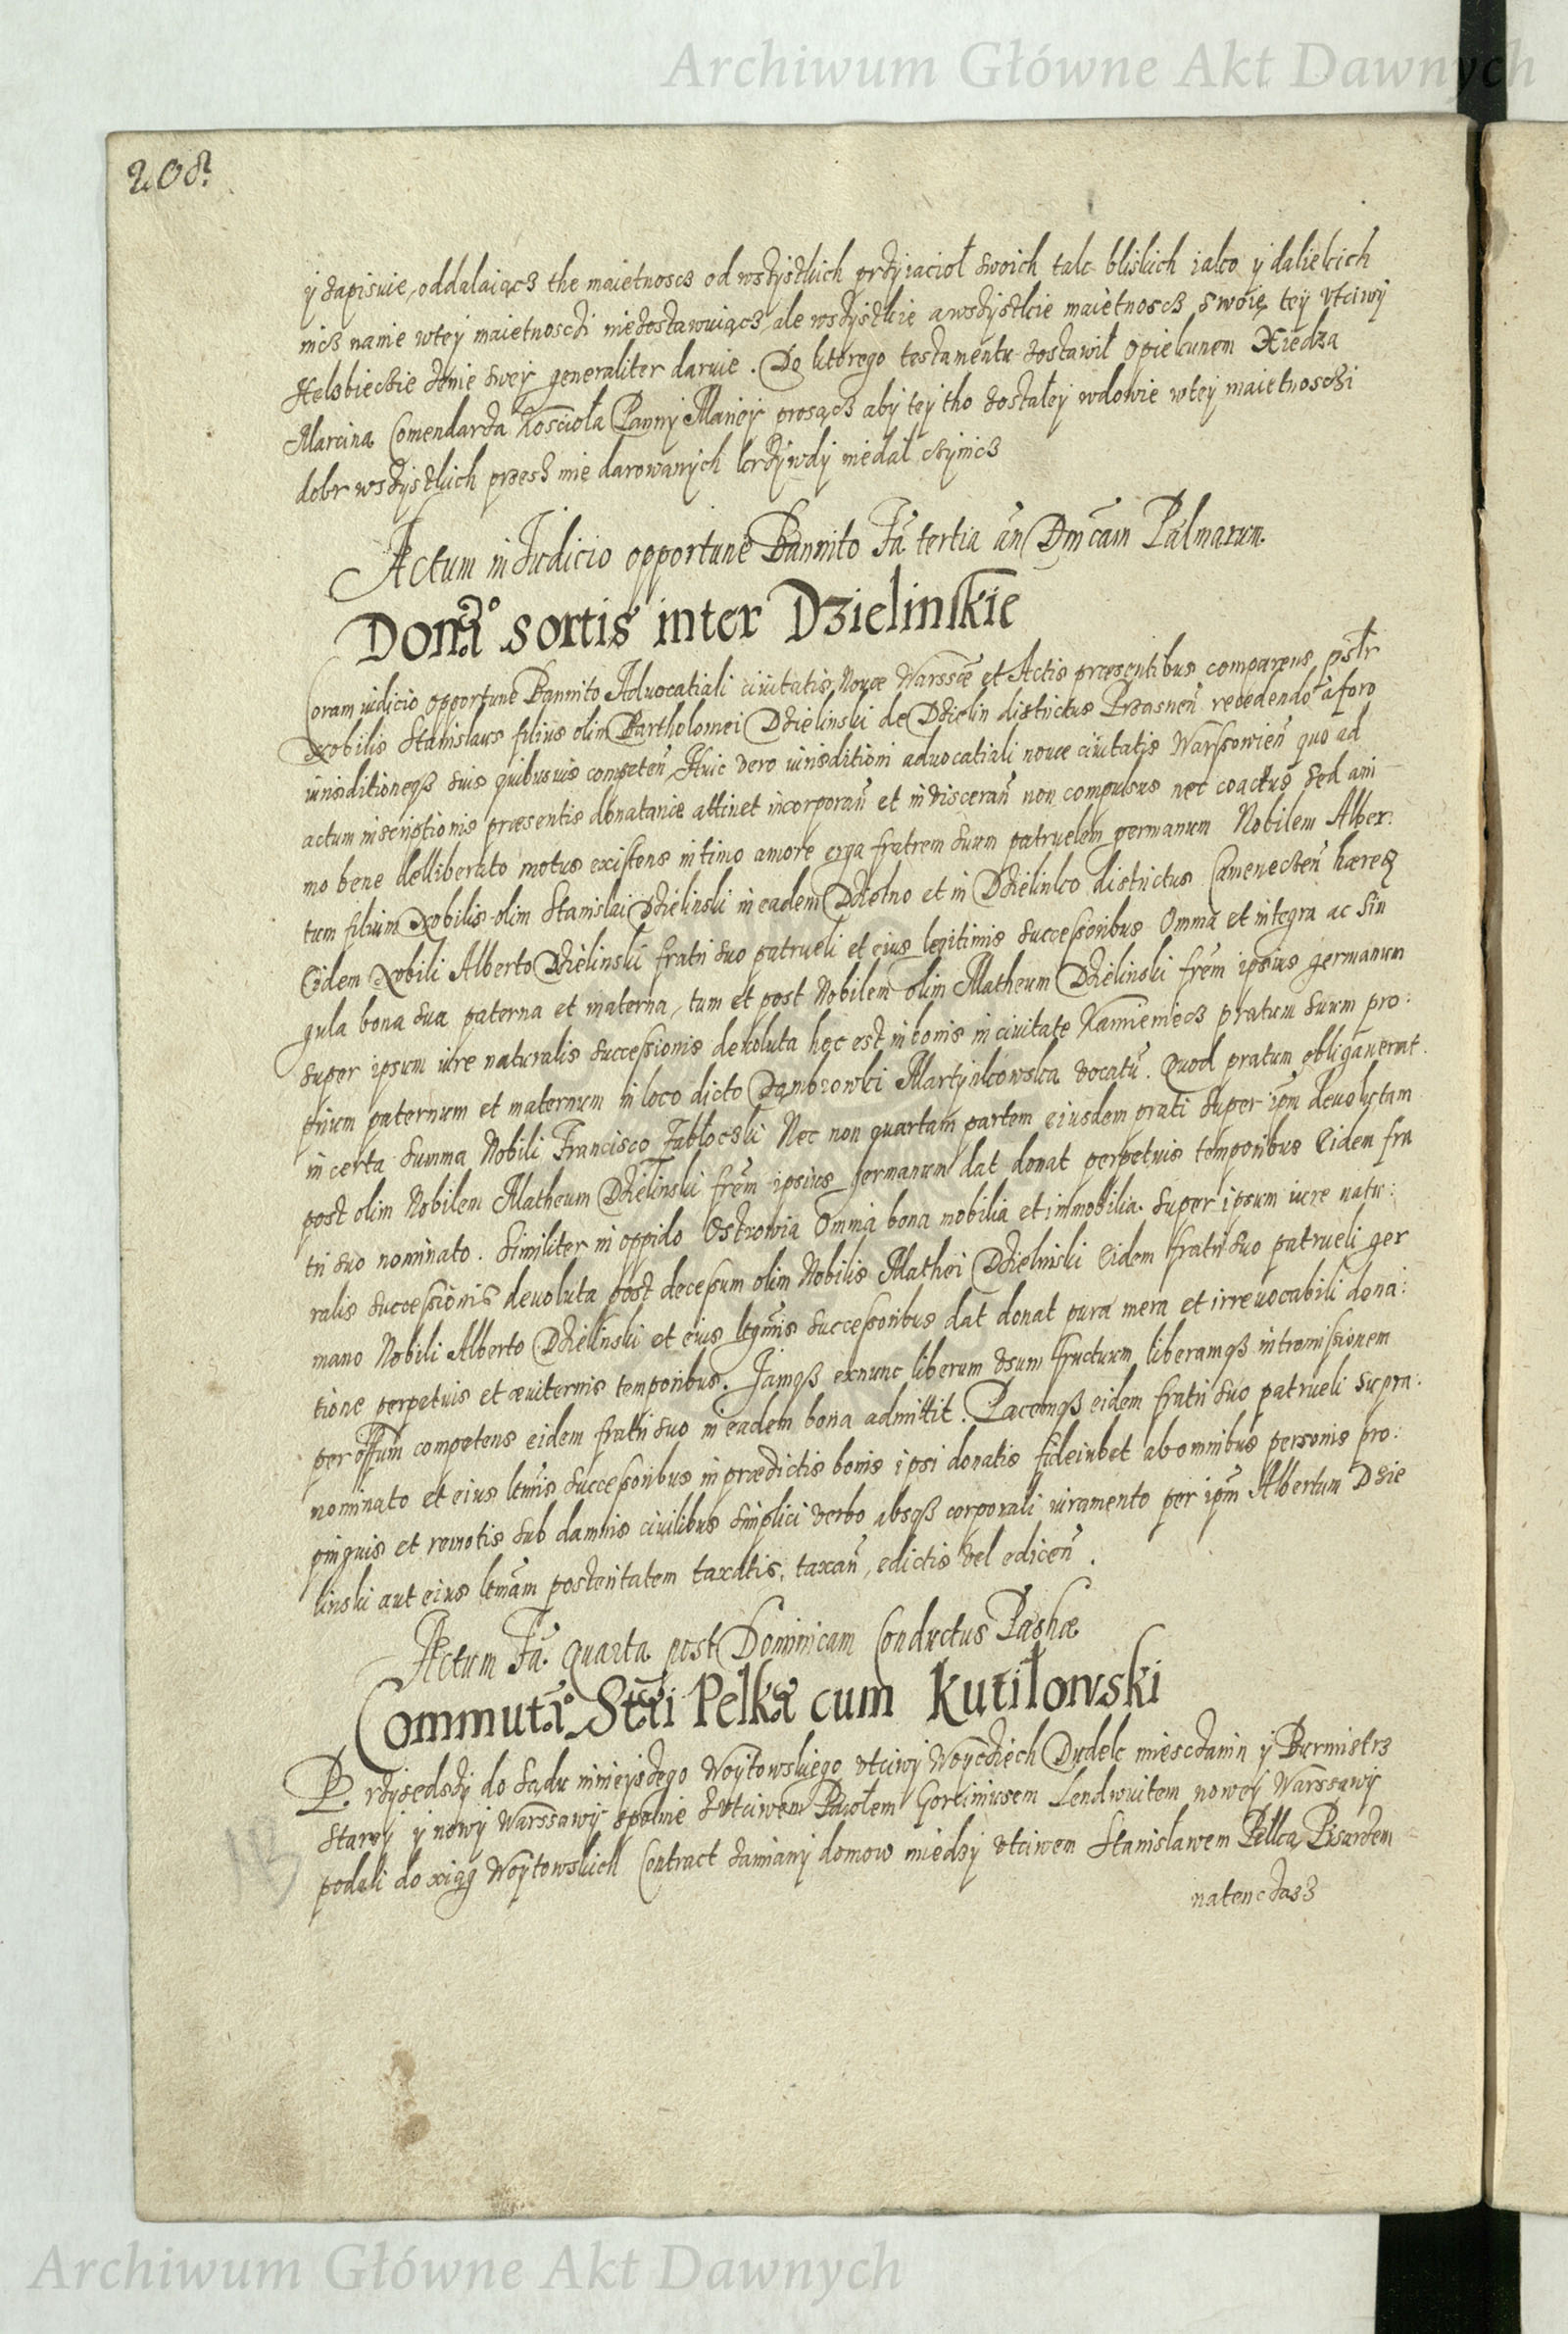 Archiwum Główne Akt Dawnych
208.
ÿ zapisuie, oddalaiącz the maietnoscz od wszÿstkich przÿiacioł swoich tak bliskich iako ÿ daliekich
nicz nanie wteÿ maietnosczi niezostawuiącz, ale wszÿstkie awszÿstkie maietnoscz swoię teÿ vtciwÿ
Helzbieczie żenie sweÿ generaliter daruie. Do ktorego testamentu zostawił opiekunem Xiedza
Marcina Comendarza Kosciola Pannÿ Marieÿ prosącz abÿ teÿ tho zostałeÿ wdowie wteÿ maietnosczi
dobr wszÿstkich przesz mie darowanÿch krzÿwdÿ niedał czÿnicz
Actum in Iudicio opportune Bannito Fã tertia añ Dnĩcam Palmarum.
Donã° sortis inter Dzielinskie
Coram iudicio opportune Bannito Aduocatiali ciuitatis Nouæ Warssæ et Actis præsentibus comparens pslr
Nobilis Stanislaus filius olim Bartholomei Dzielinski de Dzielin districtus Przasneñ recedendo a foro
iurisditioneqз suis quibusuis competeñ Huic vero iurisditioni aduocatiali nouæ ciuitatis Warssowieñ quo ad
actum inscriptionis præsentis donatariæ attinet incorporañ et inuisceranñ non compulsus nec coactus sed ani
mo bene delliberato motus existens intimo amore erga fratrem suum patruelem germanum Nobilem Alber:
tum filium Nobilis olim Stanislai Dzielinski in eadem Dzielno et in Dzielinko districtus Cameneczeñ hæreз
Eidem Nobili Alberto Dzielinski fratri suo patrueli et eius legitimis successoribus Omnia et integra ac sin
gula bona sua paterna et materna, tum et post Nobilem olim Matheum Dzielinski frem̃ ipsius germanum
super ipsum iure naturalis successionis deuoluta hoc est in bonis in ciuitate Kamieniecz pratum suum pro:
prium paternum et maternum in loco dicto Dambrowki Martÿnkowska vocatũ. Quod pratum obligauerat
in certa summa Nobili Francisco Zabłoczki Nec non quartam partem eiusdem prati super ipm̃ deuolutam
post olim Nobilem Matheum Dzielinski frem̃ ipsius germanum dat donat perpetuis temporibus Eidem fra
tri suo nominato. Similiter in oppido Ostrowia Omnia bona mobilia et immobilia super ipsum iure natu:
ralis successionis deuoluta post decessum olim Nobilis Mathei Dzielinski Eidem fratri suo patrueli ger
mano Nobili Alberto Dzielinski et eius lgtimis successoribus dat donat pura mera et irreuocabili dona:
tione perpetuis et æuiternis temporibus. Iamqз exnunc liberum vsum fructum liberamqз intromissionem
per offum̃ competens eidem fratri suo in eadem bona admittit. Pacemqз eidem fratri suo patrueli supra:
nominato et eius ltimis successoribus in prædictis bonis ipsi donatis fideiubet ab omnibus personis pro:
pinquis et remotis sub damnis ciuilibus simplici verbo absqз corporali iuramento per ipm̃ Albertum Dzie
linski aut eius ltimam posteritatem taxatis, taxañ, edictis vel ediceñ.
Actum Fã quarta post Dominicam Conductus Paschæ
Commutã° Stãi Pelkã cum Kutiłowski
Przÿsedszÿ do sądu ninieÿszego Woÿtowskiego vtciwÿ Woÿcziech Dudek miesczanin ÿ Burmistrz
Stareÿ ÿ nowÿ Warssawÿ spolnie zvtciwem Pawłem Gorciniusem Lendwuitem noweÿ Warssawÿ
podali do xiąg Woÿtowskich Contract zamianÿ domow miedzÿ vtciwem Stanisławem Pełką Pisarzem
natenczasz
Archiwum Główne Akt Dawnych